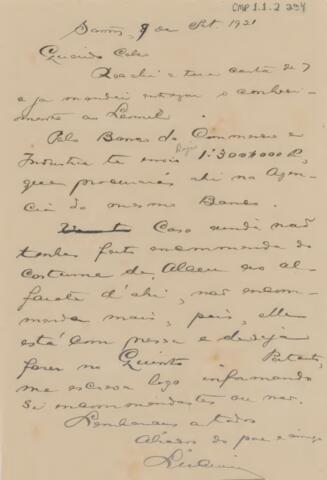 CMP 1.1.2.294
Santos, 9 de Set. 1921
Querido
Recebi a tua carta de 7
e ja mandei entregar o conheci-
mento ao
Pelo Banco do Commercio e
Industria te envio hoje 1:300$000 R,
que procurarás ahi na Agen-
cia do mesmo Banco.
Caso ainda não
tenhas feito encommenda do
costume de Alceu ao al-
faiate d'ahi, não encom-
mende mais, pois, elle
está com pressa e deseja
fazer no Quinto
me escreva logo informando
si encommendastes ou não.
Lembranças a todos
Abraços do pae e amigo